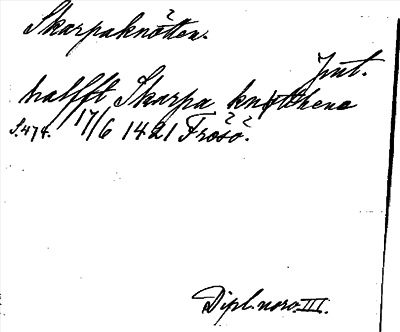 Skarpaknöten.
Jmt.
halfft Skarpa knotthene
S. 474. 17/6 1421 Frösö.
Dipl. norv. III.